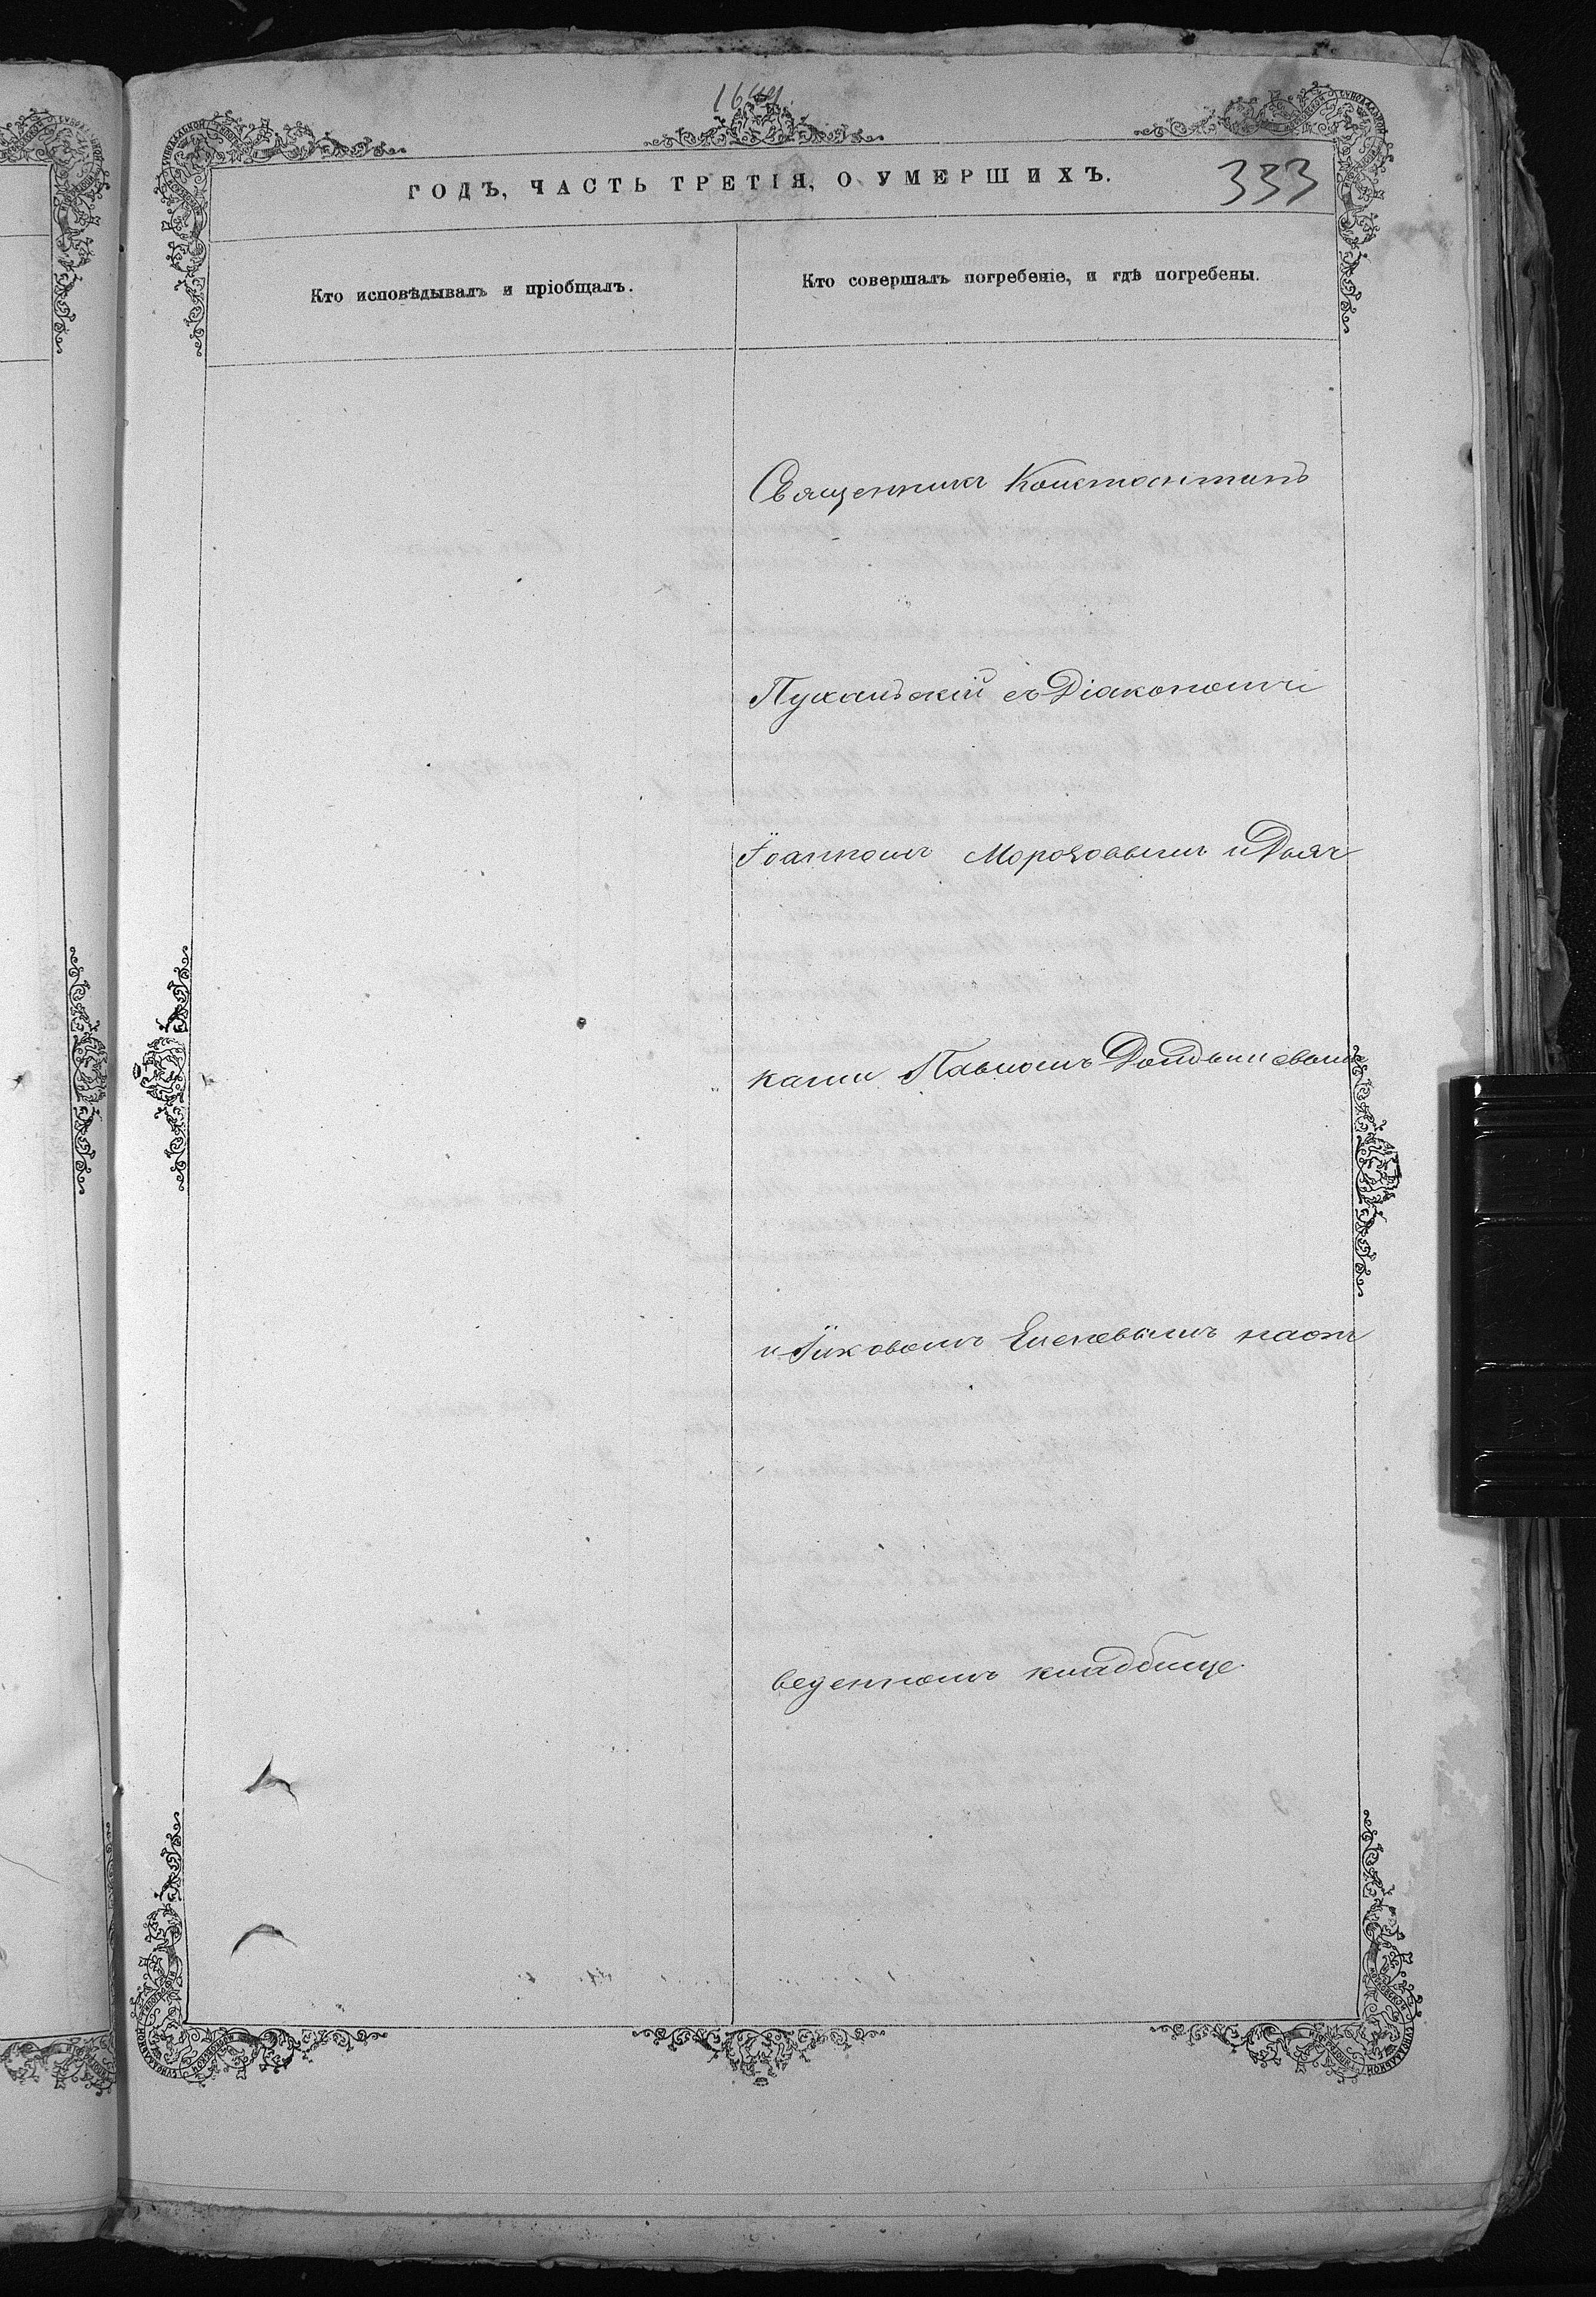 333
ГОДЪ, ЧАСТЬ ТРЕТІЯ, О УМЕРШИХЪ.
Кто исповѣдывалъ и пріобщалъ.
Кто совершалъ погребеніе, и гдѣ погребены.
Священникъ Константинъ
съ Діакономъ
Іоанномъ Морозовымъ и Дьяч
ками Павломъ
и Яковомъ наот
веденномъ кладбище.